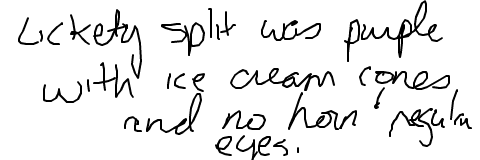 Lickety split was purple
with ice cream cones,
and no horn, regular
eyes.